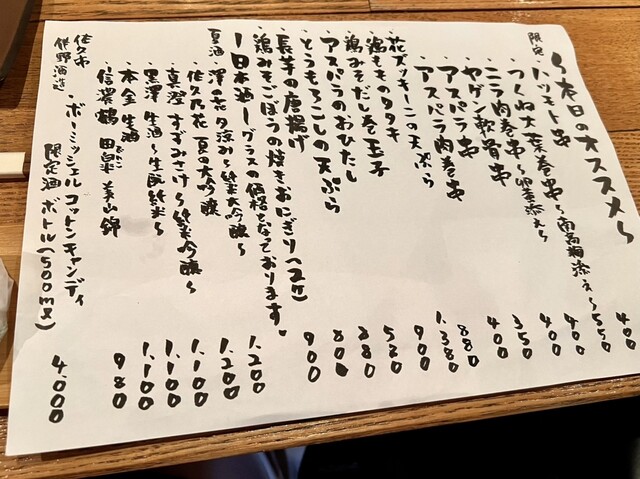 〜本日のオススメ〜
限定・ハツモト串 400
・つくね大葉巻串〜南高梅添え〜 550
・ニラ肉巻串〜卵黄添え〜 400
・ヤゲン軟骨串 400
・アスパラ串 350
・アスパラ肉巻串 400
・花ズッキーニの天ぷら 880
・鶏もものタタキ 1,380
・鶏みそだし巻玉子 900
・アスパラのおひたし 580
・とうもろこしの天ぷら 880
・長芋の唐揚げ 800
・鶏みそごぼうの焼きおにぎり(2ケ) 900
ー日本酒ーグラスの価格となっております。
夏酒・澤の花 夕涼み〜純米大吟醸〜 1,200
・佐久乃花 夏の大吟醸 1,200
・真澄 すずみさけ〜純米吟醸〜 1,100
・黒澤 生酒〜生酛純米〜 1,100
・本金 生酒 1,100
・信濃鶴 美山錦 980
佐久市
伴野酒造・ボーミッシェルコットンキャンディ
限定酒 ボトル(500ml) 4,000